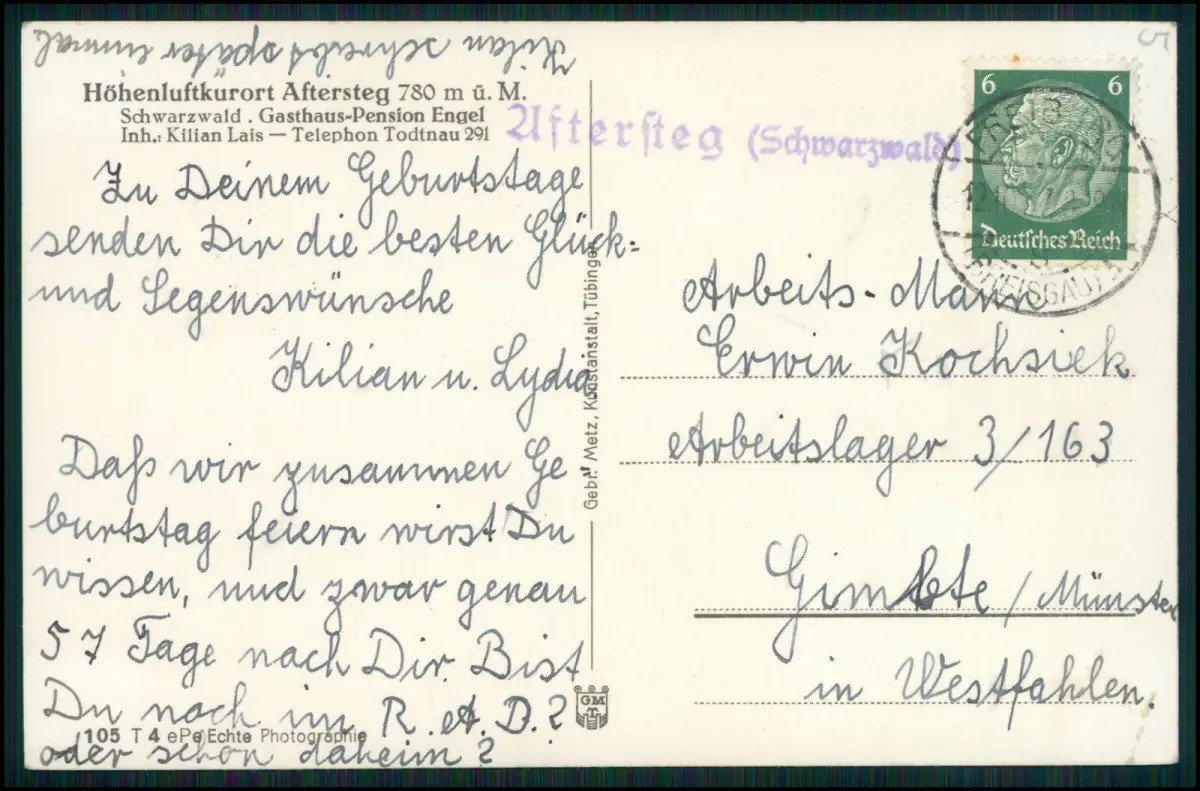 Kilian schreibt später einmal.
Höhenluftkurort Aftersteg 780 m ü. M.
Schwarzwald . Gasthaus-Pension Engel
Inh.: Kilian Lais — Telephon Todtnau 291
Zu Deinem Geburtstage
senden Dir die besten Glück-
und Segenswünsche
Kilian u. Lydia
Daß wir zusammen Ge
burtstag feiern wirst Du
wissen, und zwar genau
57 Tage nach Dir. Bist
Du noch im R. A. D.?
oder schon daheim?
105 T 4 ePe Echte Photographie
Gebr. Metz, Kunstanstalt, Tübingen
GM
T
Aftersteg (Schwarzwald)
6 6
Deutsches Reich
FREIB
12.1
(BREISGAU)
Arbeits-Mann
Erwin Kochsiek
Arbeitslager 3/163
Gimbte / Münster
in Westfahlen.